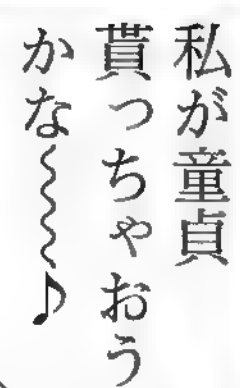 私が童貞
貰っちゃおう
かな〜〜〜♪